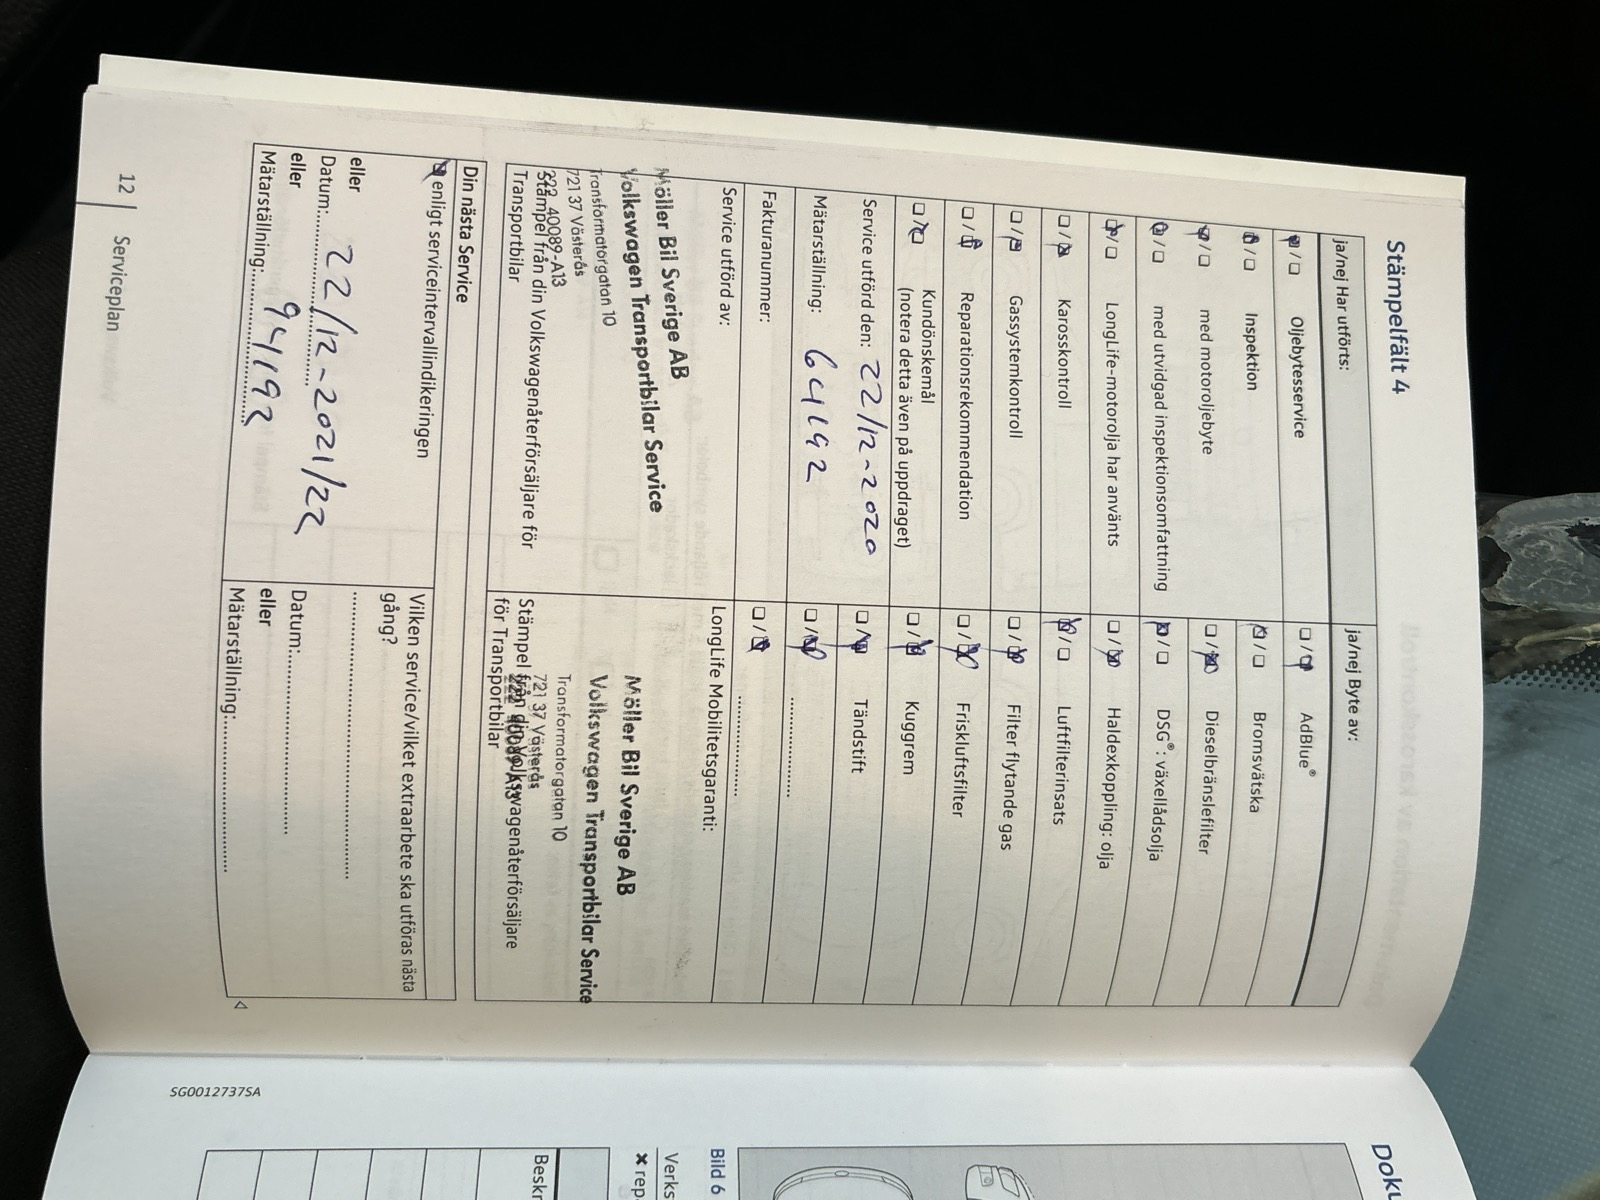 Stämpelfält 4
ja/nej Har utförts:
☒/☐ Oljebytesservice
☒/☐ Inspektion
☒/☐ med motoroljebyte
☒/☐ med utvidgad inspektionsomfattning
☒/☐ LongLife-motorolja har använts
☐/☒ Karosskontroll
☐/☒ Gassystemkontroll
☐/☒ Reparationsrekommendation
☐/☒ Kundönskemål
(notera detta även på uppdraget)
Service utförd den: 22/12-2020
Mätarställning: 64192
Fakturanummer:
Service utförd av:
Möller Bil Sverige AB
Volkswagen Transportbilar Service
Transformatorgatan 10
721 37 Västerås
222 40089-A13
Stämpel från din Volkswagenåterförsäljare för
Transportbilar
ja/nej Byte av:
☐/☒ AdBlue®
☒/☐ Bromsvätska
☐/☒ Dieselbränslefilter
☒/☐ DSG®: växellådsolja
☐/☒ Haldexkoppling: olja
☒/☐ Luftfilterinsats
☐/☒ Filter flytande gas
☐/☒ Friskluftsfilter
☐/☒ Kuggrem
☐/☒ Tändstift
☐/☒ ....................
☐/☒ ....................
LongLife Mobilitetsgaranti:
Möller Bil Sverige AB
Volkswagen Transportbilar Service
Transformatorgatan 10
721 37 Västerås
222 40089-A13
Stämpel från din Volkswagenåterförsäljare
för Transportbilar
Din nästa Service
☒ enligt serviceintervallindikeringen
eller
Datum: 22/12-2021/22
eller
Mätarställning: 94192
Vilken service/vilket extraarbete ska utföras nästa
gång?
Datum:
eller
Mätarställning:
12 | Serviceplan
SG0012737SA
Doku
Bild 6
Verks
✖ rep
Beskr